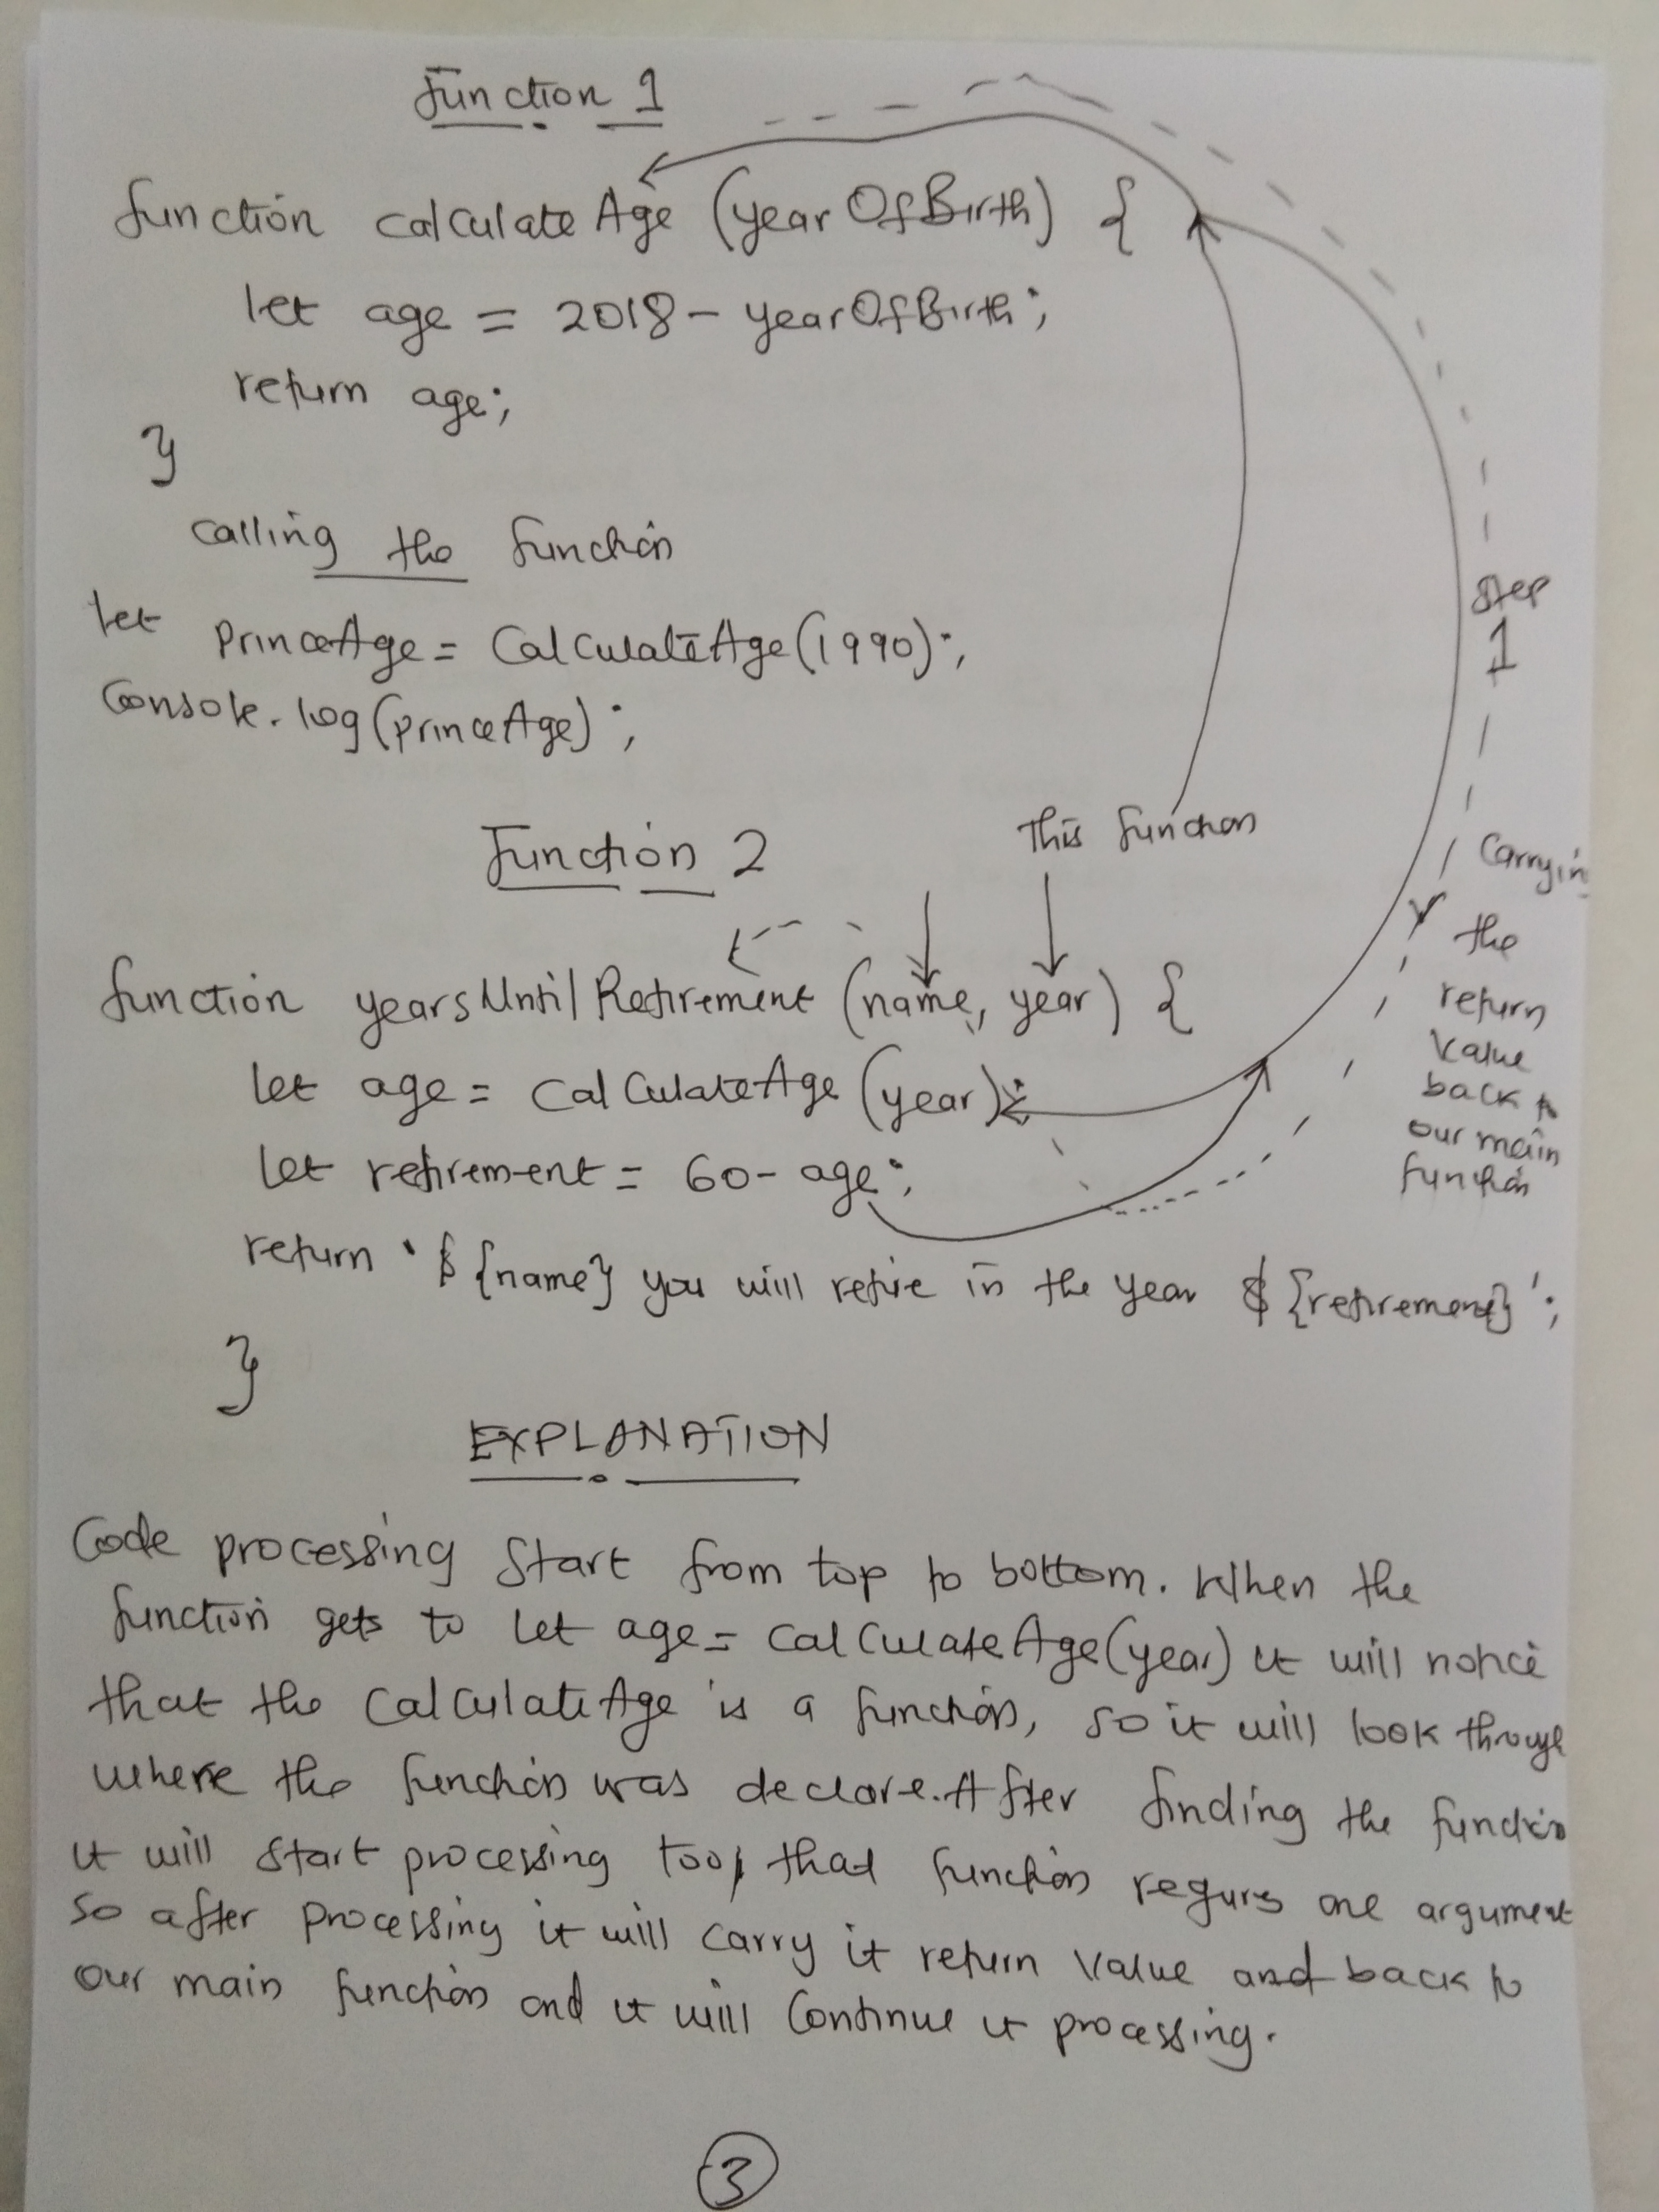 Function 1
function calculateAge (yearOfBirth) {
let age = 2018 - yearOfBirth;
return age;
}
calling the function
let princeAge = CalculateAge(1990);
Console.log(princeAge);
Function 2
This function
function yearsUntilRetirement (name, year) {
let age = CalCulateAge (year);
let retirement = 60 - age;
return `${name} you will retire in the year ${retirement}`;
}
Step
1
Carrying
the
return
Value
back to
our main
function
EXPLANATION
Code processing Start from top to bottom. When the
function gets to let age = calCulateAge(year) it will notice
that the CalCulateAge is a function, so it will look through
where the function was declare. After finding the function
it will start processing too, that function requrs one argument
So after processing it will carry it return Value and back to
our main function and it will Continue it processing.
3